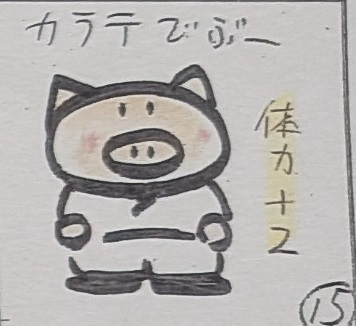 カラテでぶー
体力+2
15